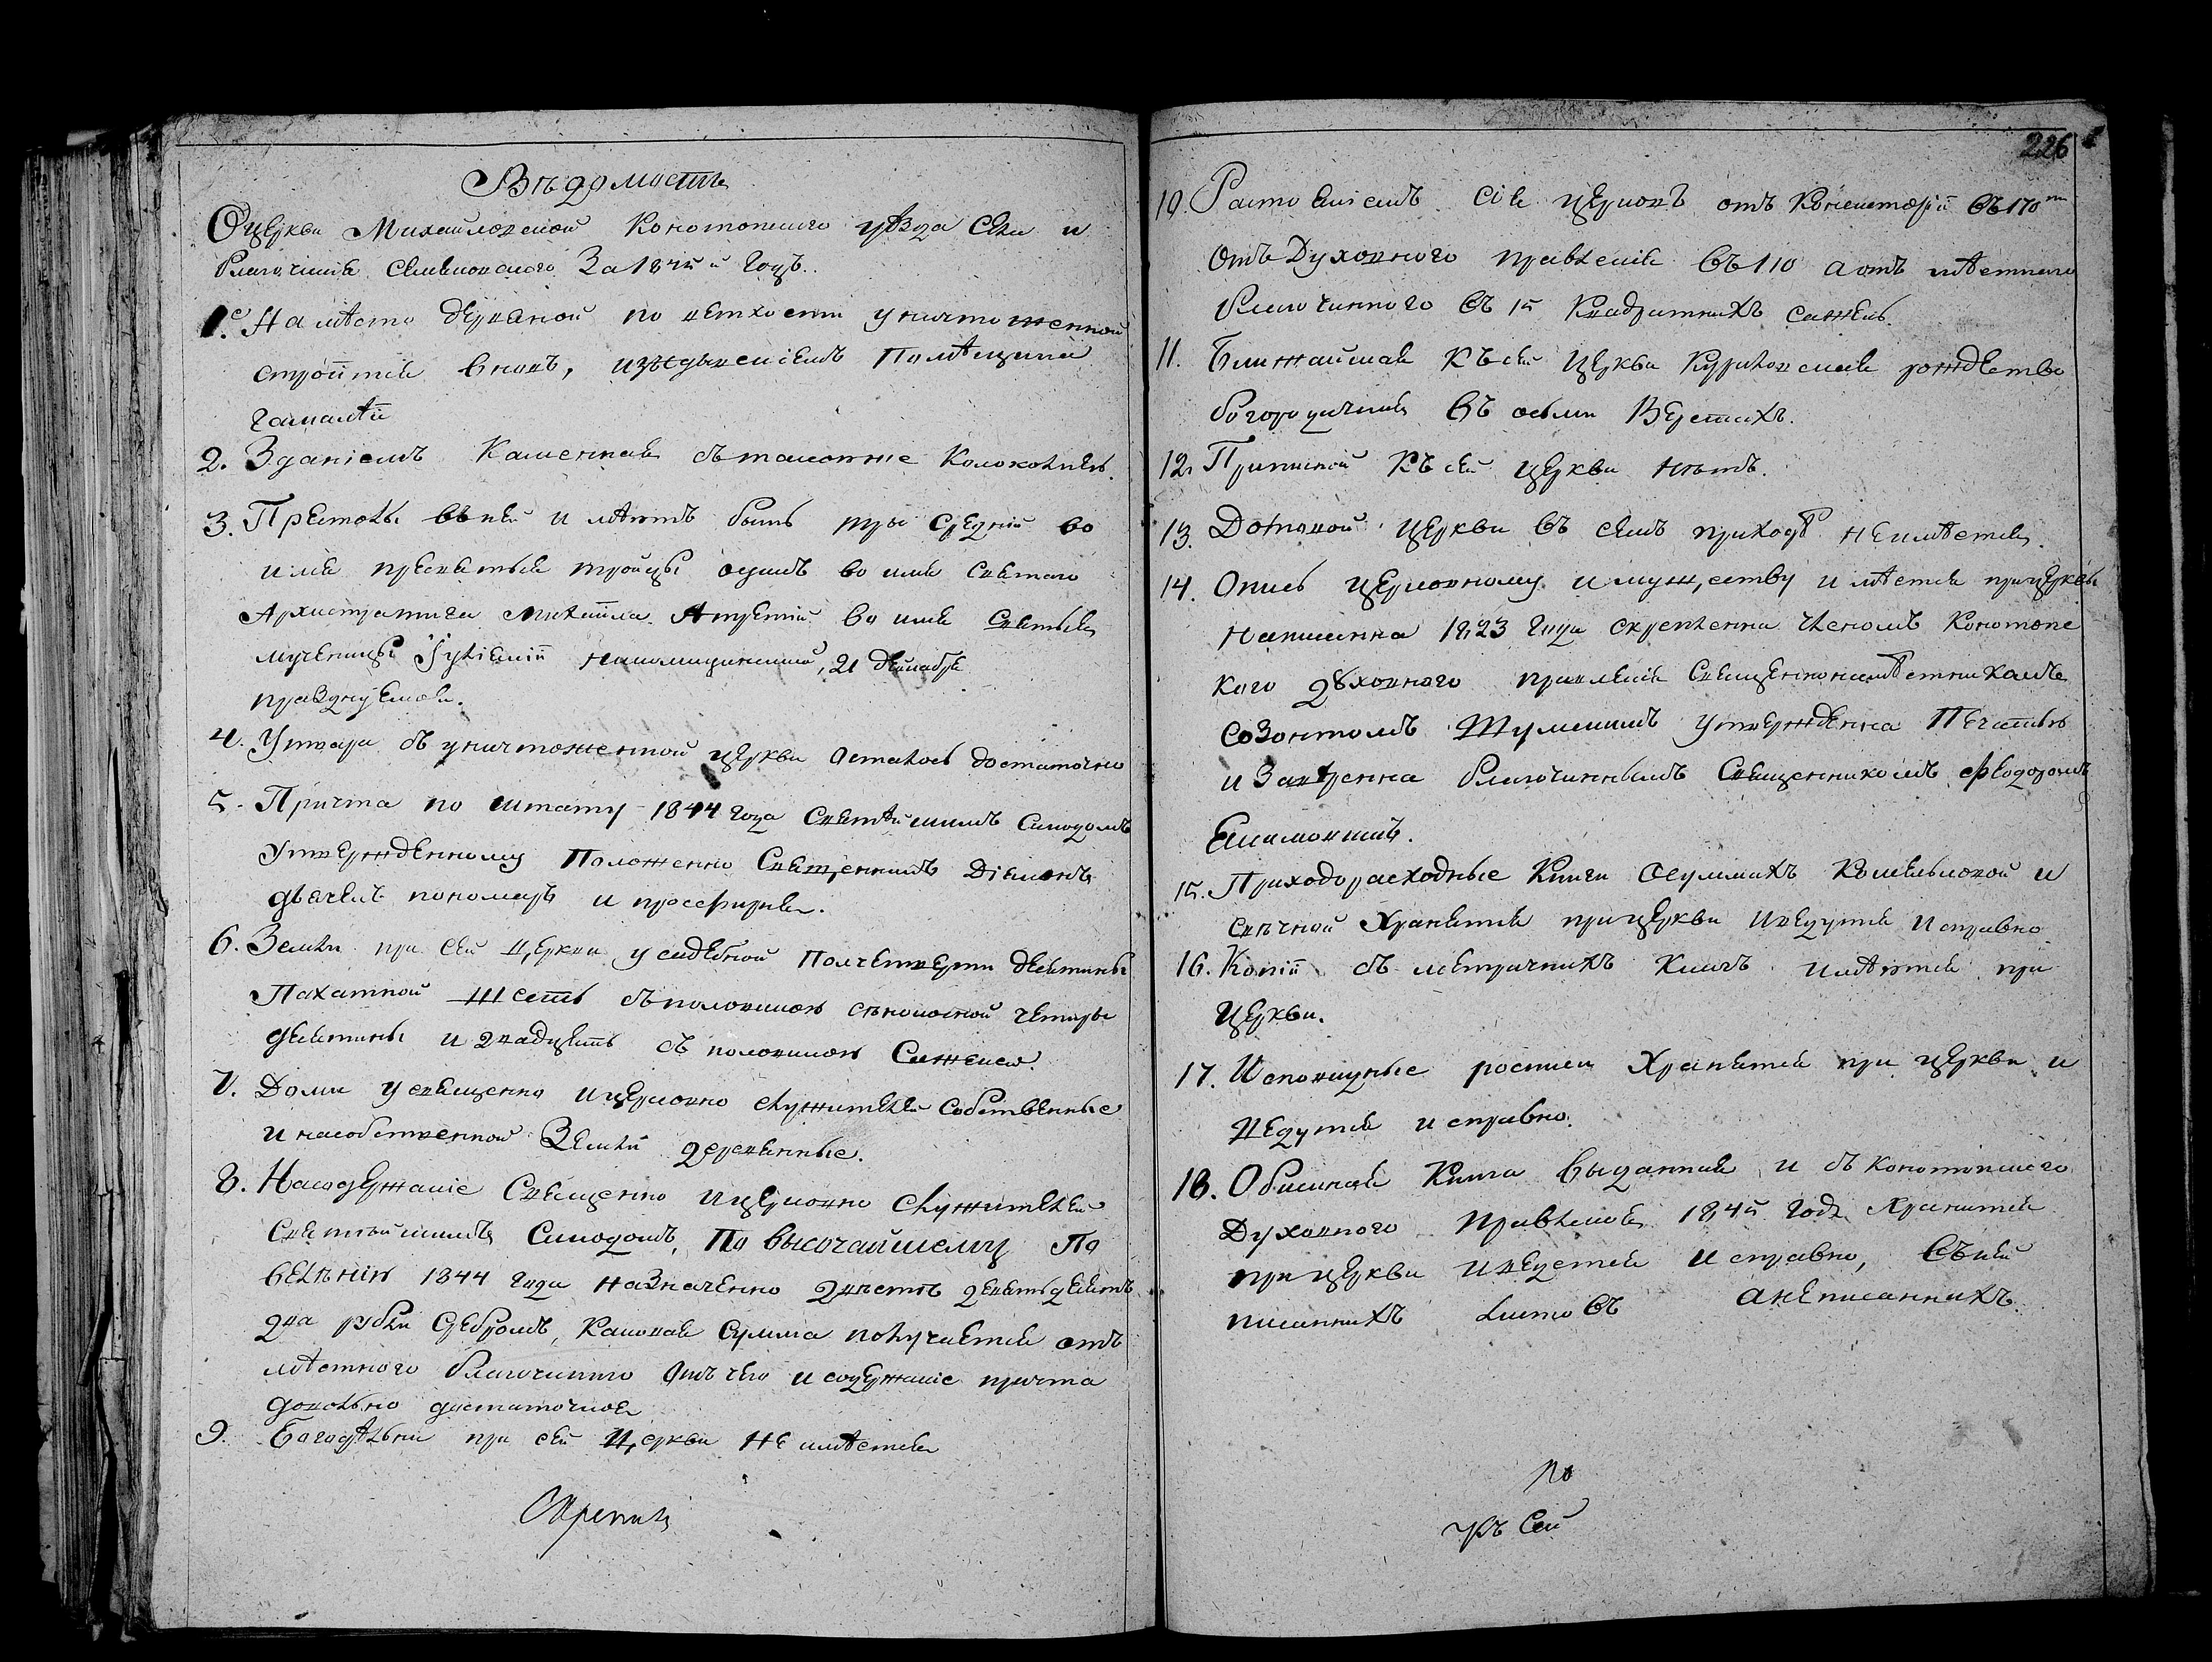 Вѣдомость
О церкви Михайловской Конотопскаго уѣзда Села и
Благочинія Семеновскаго За 1845й годъ.
1.е На мѣсто деревяной по ветхости уничтоженной
строится вновь, иждывеніемъ Помѣщика
Гамалѣи
2. Зданіемъ Каменная съ таковоюже Колокольнею.
3. Престолы въ ней имѣютъ быть три Средній во
имя пресвятыя тройцы одинъ во имя Святаго
Архистратига Михаила. А третій во имя Святыя
мученицы Іуліаніи никомидійской, 21 декабря
празднуемоя.
4. Утвари съ уничтоженной церкви осталось достаточно
5. Причта по штату 1844 года Святѣйшимъ Синодомъ
утвержденному Положенно Священникъ Діаконъ
дьячекъ пономарь и просфирня.
6. Земли при сей Церкви усадебной Полчетверти десятины
Пахатной Шесть съ половиною сѣнокосной четыре
десятины и двадцать съ половиною Саженей.
7. Домы у священно и церковно служителей Собственные
и на собственной Земли деревянные.
8. На содержаніе Священно и церковно служителей
Святѣйшимъ Синодомъ, По высочайшему По
велѣнію 1844 года назначенно двѣсти девятьдесятъ
два рубли Серебромъ, Каковая Сумма получается отъ
мѣстного благочинного отъ чего и содержаніе причта
довольно достаточное
9. Богодѣльни при сей Церкви не имѣется
Скрепилъ
226
10. Растояніемъ Сія церковъ отъ Консисторіи въ 170ти
отъ Духовного правленія въ 110 а отъ мѣстнаго
Благочинного въ 15 Квадратныхъ сажень.
11. Ближайшая Къ сей Церкви рождество
богородичная въ осьми Верстахъ.
12. Приписной Къ сей церкви нѣтъ.
13. Домовой церкви въ семъ приходѣ неимѣется.
14. Опись церковному имуществу имѣется при церкви
написанна 1823 года скрепленна членомъ Конотопс
кого духовного правленія Священнонамѣстникомъ
Созонтомъ утвержденна Печатью
и Заверенна Благочиннымъ Священникомъ Феодоромъ

15. Приходорасходные Книги о суммахъ Кошельковой и
свѣчной Хранятся при церкви и ведутся исправно
16. Копіи съ метричныхъ Книгъ имѣются при
церкви.
17. Исповедные росписи Хранятся при церкви и
ведутся исправно.
18. Обыскная Книга выданная изъ Конотопскаго
Духовного Правленія 1845 года Хранится
при церкви и ведется исправно, въ ней
писанныхъ листовъ а неписанныхъ.
по
къ Сей